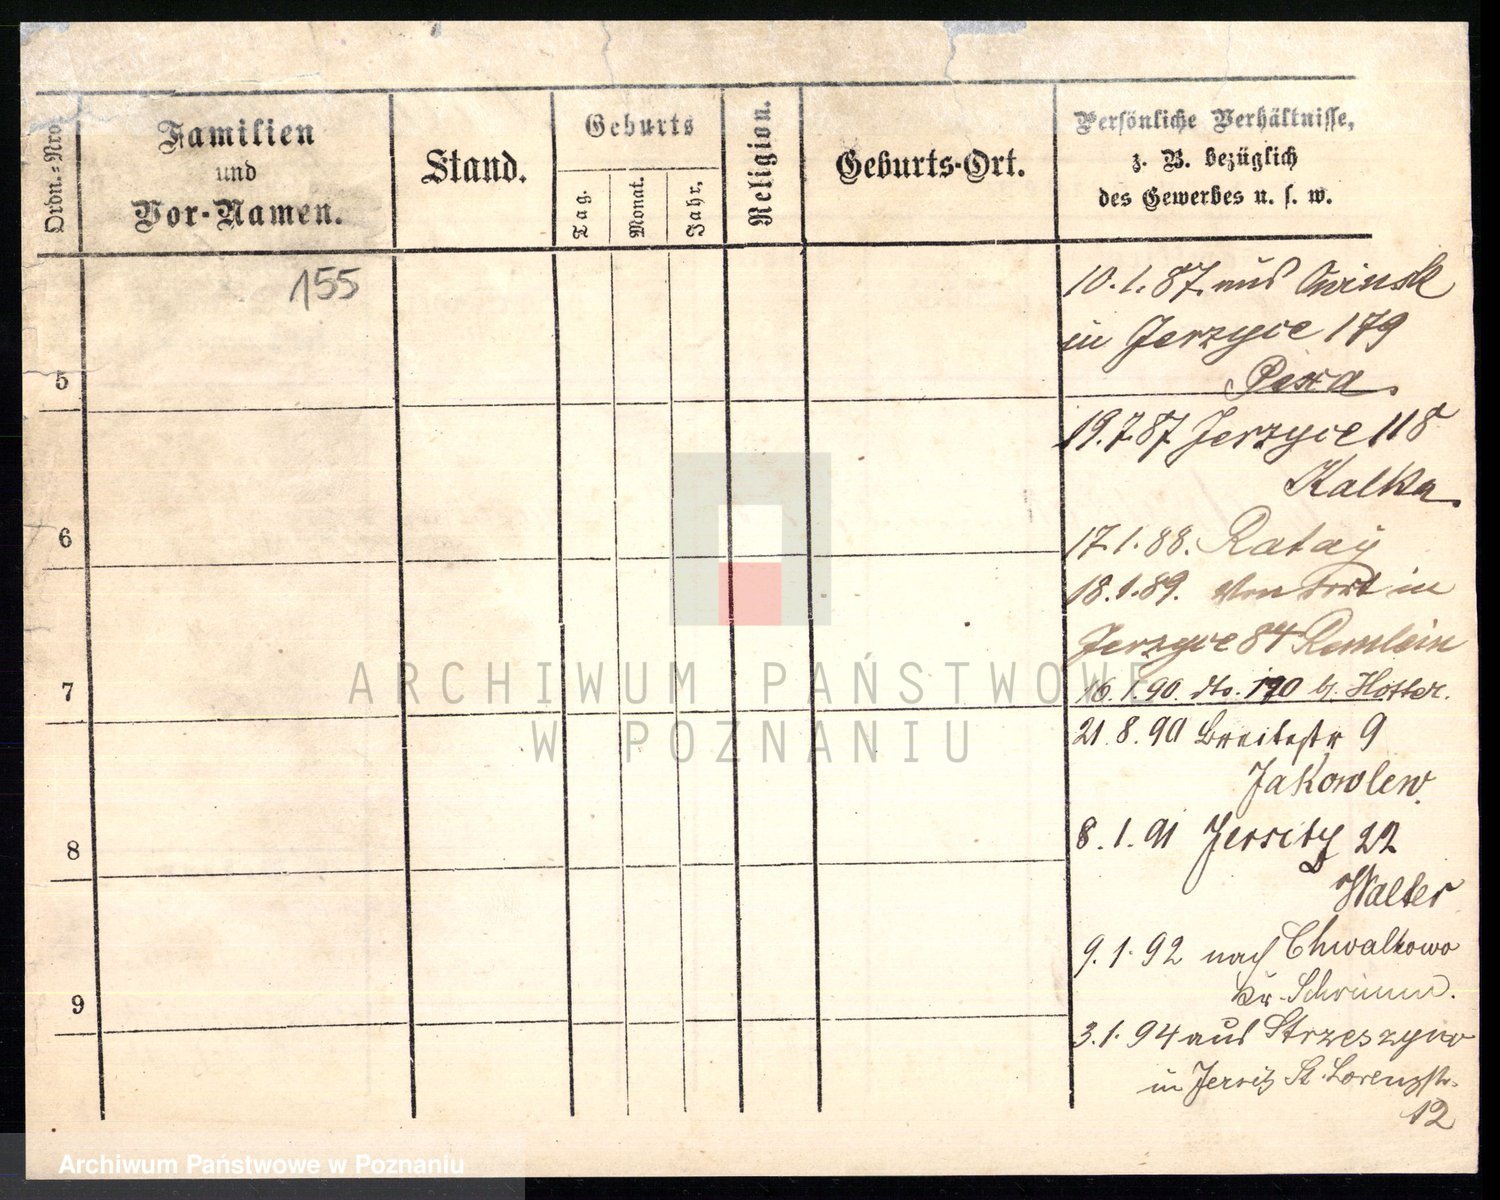 Ordn.-Nro.
Familien
und
Vor-Namen.
Stand.
Geburts
Tag.
Monat.
Jahr.
Religion.
Geburts-Ort.
Persönliche Verhältnisse,
z. B. bezüglich
des Gewerbes u. s. w.
155
10.1.87. aus Owinsk
in Jerzyce 179
5
19.7.87 Jerzyce 118
Kalka
6
17.1.88. Ratay
18.1.89. Von dort in
Jerzyce 84 Remlein
7
16.1.90. dto. 190
21.8.90 Breitestr 9
Jakowlew.
8
8.1.91 Jersitz 22
Walter
9.1.92 nach Chwalkowo
Kr. Schrimm.
9
3.1.94 aus Strzeszyno
in Jersitz St. Lorenzstr.
12
ARCHIWUM PAŃSTWOWE
W POZNANIU
Archiwum Państwowe w Poznaniu